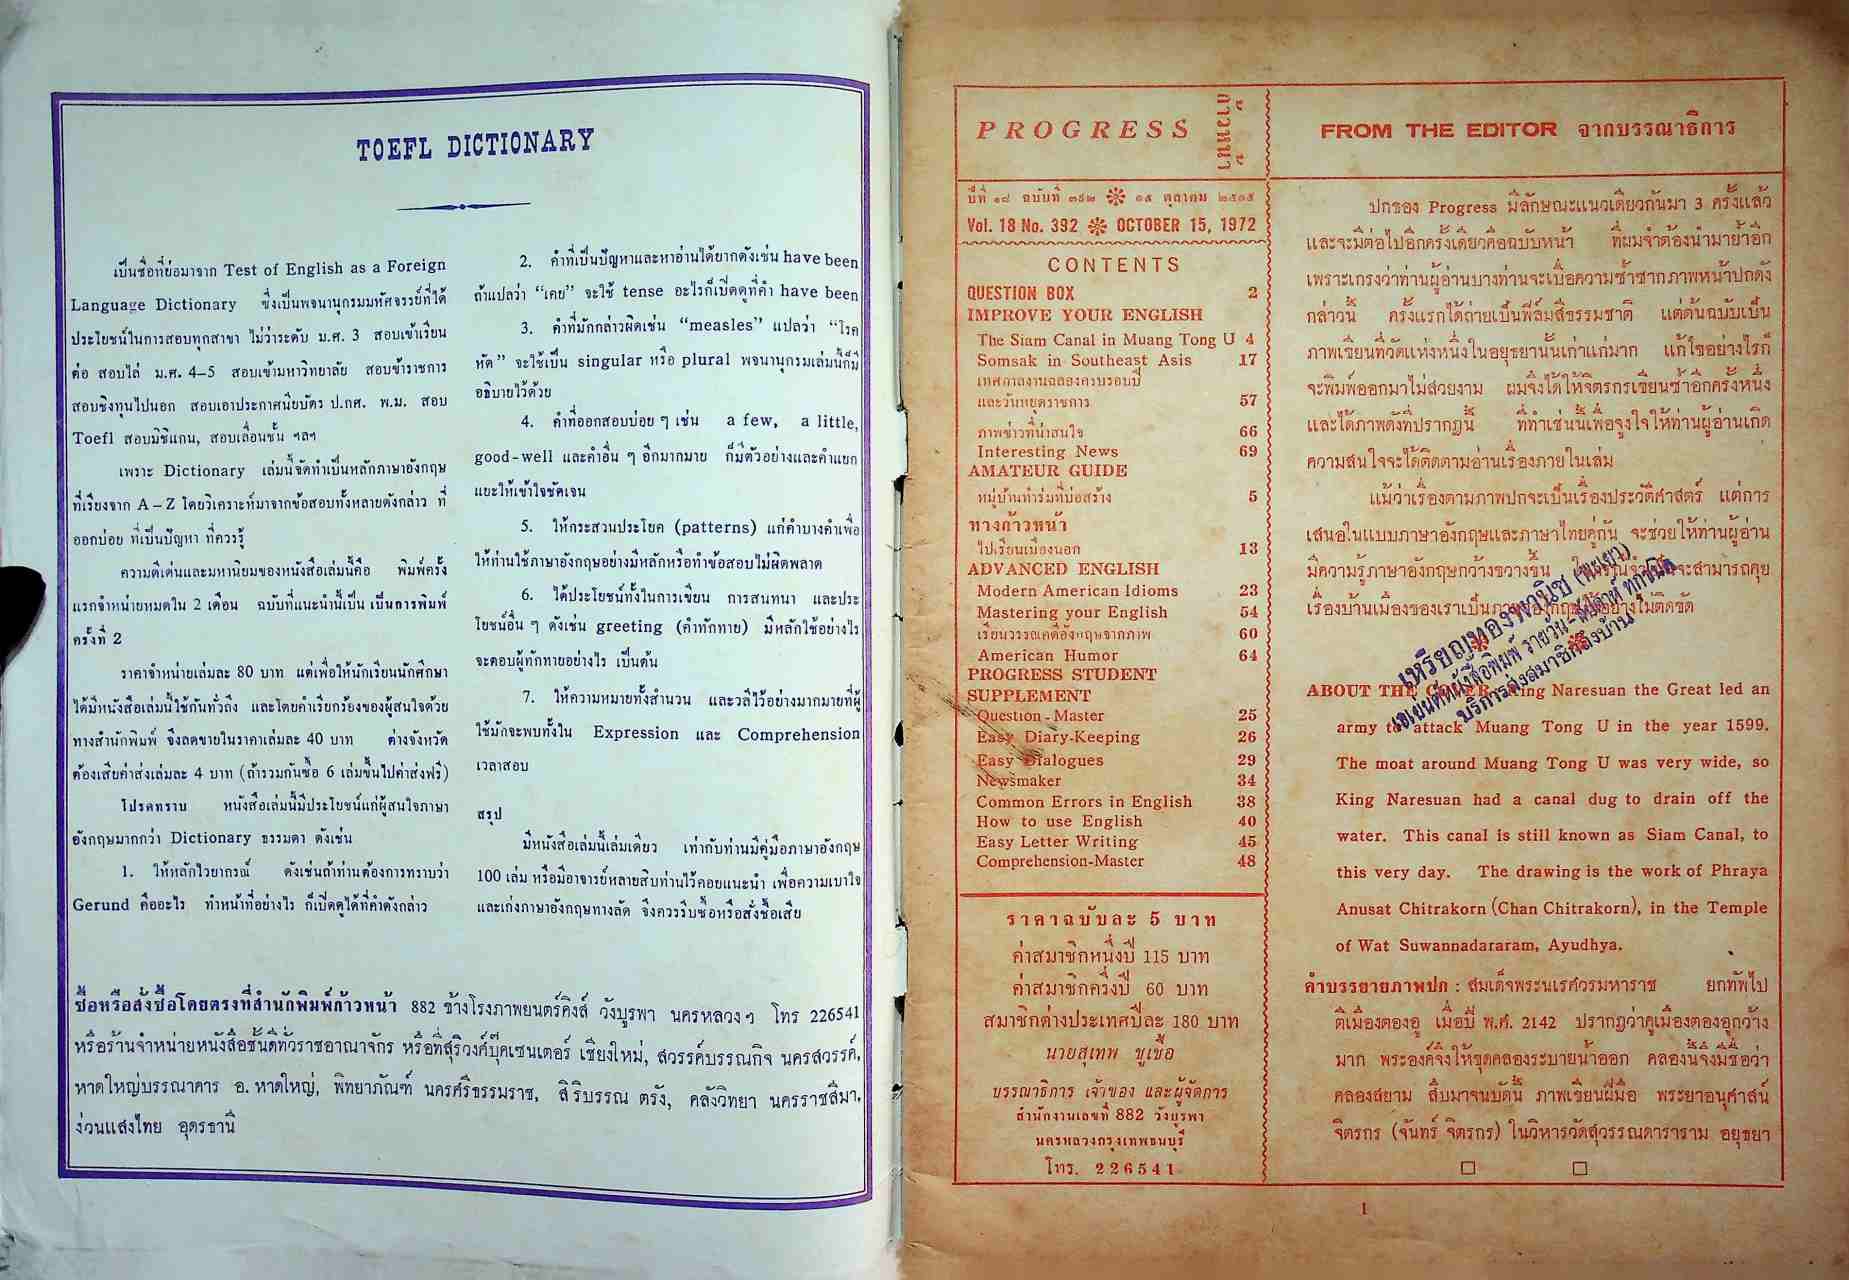 TOEFL DICTIONARY
เป็นชื่อที่ย่อมาจาก Test of English as a Foreign
Language Dictionary ซึ่งเป็นพจนานุกรมมหัศจรรย์ที่ได้
ประโยชน์ในการสอบทุกสาขา ไม่ว่าระดับ ม.ศ. 3 สอบเข้าเรียน
ต่อ สอบไล่ ม.ศ. 4-5 สอบเข้ามหาวิทยาลัย สอบข้าราชการ
สอบชิงทุนไปนอก สอบเอาประกาศนียบัตร ป.กศ. พ.ม. สอบ
Toefl สอบมิชิแกน, สอบเลื่อนชั้น ฯลฯ
เพราะ Dictionary เล่มนี้จัดทำเป็นหลักภาษาอังกฤษ
ที่เรียงจาก A – Z โดยวิเคราะห์มาจากข้อสอบทั้งหลายดังกล่าว ที่
ออกบ่อย ที่เป็นปัญหา ที่ควรรู้
ความดีเด่นและมหานิยมของหนังสือเล่มนี้คือ พิมพ์ครั้ง
แรกจำหน่ายหมดใน 2 เดือน ฉบับที่แนะนำนี้เป็น เป็นการพิมพ์
ครั้งที่ 2
ราคาจำหน่ายเล่มละ 80 บาท แต่เพื่อให้นักเรียนนักศึกษา
ได้มีหนังสือเล่มนี้ใช้กันทั่วถึง และโดยคำเรียกร้องของผู้สนใจด้วย
ทางสำนักพิมพ์ จึงลดขายในราคาเล่มละ 40 บาท ต่างจังหวัด
ต้องเสียค่าส่งเล่มละ 4 บาท (ถ้ารวมกันซื้อ 6 เล่มขึ้นไปค่าส่งฟรี)
โปรดทราบ หนังสือเล่มนี้มีประโยชน์แก่ผู้สนใจภาษา
อังกฤษมากกว่า Dictionary ธรรมดา ดังเช่น
1. ให้หลักไวยากรณ์ ดังเช่นถ้าท่านต้องการทราบว่า
Gerund คืออะไร ทำหน้าที่อย่างไร ก็เปิดดูได้ที่คำดังกล่าว
2. คำที่เป็นปัญหาและหาอ่านได้ยากดังเช่น have been
ถ้าแปลว่า “เคย” จะใช้ tense อะไรก็เปิดดูที่คำ have been
3. คำที่มักกล่าวผิดเช่น “measles” แปลว่า “โรค
หัด” จะใช้เป็น singular หรือ plural พจนานุกรมเล่มนี้ก็มี
อธิบายไว้ด้วย
4. คำที่ออกสอบบ่อย ๆ เช่น a few, a little,
good-well และคำอื่น ๆ อีกมากมาย ก็มีตัวอย่างและคำแยก
แยะให้เข้าใจชัดเจน
5. ให้กระสวนประโยค (patterns) แก่คำบางคำเพื่อ
ให้ท่านใช้ภาษาอังกฤษอย่างมีหลักหรือทำข้อสอบไม่ผิดพลาด
6. ได้ประโยชน์ทั้งในการเขียน การสนทนา และประ
โยชน์อื่น ๆ ดังเช่น greeting (คำทักทาย) มีหลักใช้อย่างไร
จะตอบผู้ทักทายอย่างไร เป็นต้น
7. ให้ความหมายทั้งสำนวน และวลีไว้อย่างมากมายที่ผู้
ใช้มักจะพบทั้งใน Expression และ Comprehension
เวลาสอบ
สรุป
มีหนังสือเล่มนี้เล่มเดียว เท่ากับท่านมีคู่มือภาษาอังกฤษ
100 เล่ม หรือมีอาจารย์หลายสิบท่านไว้คอยแนะนำ เพื่อความเบาใจ
และเก่งภาษาอังกฤษทางลัด จึงควรรีบซื้อหรือสั่งซื้อเสีย
ซื้อหรือสั่งซื้อโดยตรงที่สำนักพิมพ์ก้าวหน้า 882 ข้างโรงภาพยนตร์คิงส์ วังบูรพา นครหลวงฯ โทร 226541
หรือร้านจำหน่ายหนังสือชั้นดีทั่วราชอาณาจักร หรือที่สุริวงค์บุ๊คเซนเตอร์ เชียงใหม่, สวรรค์บรรณกิจ นครสวรรค์,
หาดใหญ่บรรณาคาร อ. หาดใหญ่, พิทยาภัณฑ์ นครศรีธรรมราช, สิริบรรณ ตรัง, คลังวิทยา นครราชสีมา,
ง่วนแสงไทย อุดรธานี
PROGRESS
ก้าวหน้า
ปีที่ ๑๘ ฉบับที่ ๓๙๒ ❊ ๑๕ ตุลาคม ๒๕๑๕
Vol. 18 No. 392 ❊ OCTOBER 15, 1972
CONTENTS
QUESTION BOX 2
IMPROVE YOUR ENGLISH
The Siam Canal in Muang Tong U 4
Somsak in Southeast Asis 17
เทศกาลงานฉลองครบรอบปี
และวันหยุดราชการ 57
ภาพข่าวที่น่าสนใจ 66
Interesting News 69
AMATEUR GUIDE
หมู่บ้านทำร่มที่บ่อสร้าง 5
ทางก้าวหน้า
ไปเรียนเมืองนอก 13
ADVANCED ENGLISH
Modern American Idioms 23
Mastering your English 54
เรียนวรรณคดีอังกฤษจากภาพ 60
American Humor 64
PROGRESS STUDENT
SUPPLEMENT
Question - Master 25
Easy Diary-Keeping 26
Easy Dialogues 29
Newsmaker 34
Common Errors in English 38
How to use English 40
Easy Letter Writing 45
Comprehension-Master 48
ราคาฉบับละ 5 บาท
ค่าสมาชิกหนึ่งปี 115 บาท
ค่าสมาชิกครึ่งปี 60 บาท
สมาชิกต่างประเทศปีละ 180 บาท
นายสุเทพ ชูเชื้อ
บรรณาธิการ เจ้าของ และผู้จัดการ
สำนักงานเลขที่ 882 วังบูรพา
นครหลวงกรุงเทพธนบุรี
โทร. 226541
FROM THE EDITOR จากบรรณาธิการ
ปกของ Progress มีลักษณะแนวเดียวกันมา 3 ครั้งแล้ว
และจะมีต่อไปอีกครั้งเดียวคือฉบับหน้า ที่ผมจำต้องนำมาย้ำอีก
เพราะเกรงว่าท่านผู้อ่านบางท่านจะเบื่อความซ้ำซากภาพหน้าปกดัง
กล่าวนี้ ครั้งแรกได้ถ่ายเป็นฟีล์มสีธรรมชาติ แต่ต้นฉบับเป็น
ภาพเขียนที่วัดแห่งหนึ่งในอยุธยานั้นเก่าแก่มาก แก้ไขอย่างไรก็
จะพิมพ์ออกมาไม่สวยงาม ผมจึงได้ให้จิตรกรเขียนซ้ำอีกครั้งหนึ่ง
และได้ภาพดังที่ปรากฏนี้ ที่ทำเช่นนี้เพื่อจูงใจให้ท่านผู้อ่านเกิด
ความสนใจจะได้ติดตามอ่านเรื่องภายในเล่ม
แม้ว่าเรื่องตามภาพปกจะเป็นเรื่องประวัติศาสตร์ แต่การ
เสนอในแบบภาษาอังกฤษและภาษาไทยคู่กัน จะช่วยให้ท่านผู้อ่าน
มีความรู้ภาษาอังกฤษกว้างขวางขึ้น จะสามารถคุย
เรื่องบ้านเมืองของเราเป็นภาษาอังกฤษได้อย่างไม่ติดขัด
เหรียญทองพานิช (พะเยา)
เอเยนต์หนังสือพิมพ์ รายวัน-สัปดาห์ ทุกชนิด
บริการส่งสมาชิกถึงบ้าน
ABOUT THE COVER King Naresuan the Great led an
army to attack Muang Tong U in the year 1599.
The moat around Muang Tong U was very wide, so
King Naresuan had a canal dug to drain off the
water. This canal is still known as Siam Canal, to
this very day. The drawing is the work of Phraya
Anusat Chitrakorn (Chan Chitrakorn), in the Temple
of Wat Suwannadararam, Ayudhya.
คำบรรยายภาพปก : สมเด็จพระนเรศวรมหาราช ยกทัพไป
ตีเมืองตองอู เมื่อปี พ.ศ. 2142 ปรากฏว่าคูเมืองตองอูกว้าง
มาก พระองค์จึงให้ขุดคลองระบายน้ำออก คลองนี้จึงมีชื่อว่า
คลองสยาม สืบมาจนบัดนี้ ภาพเขียนฝีมือ พระยาอนุศาสน์
จิตรกร (จันทร์ จิตรกร) ในวิหารวัดสุวรรณดาราราม อยุธยา
1